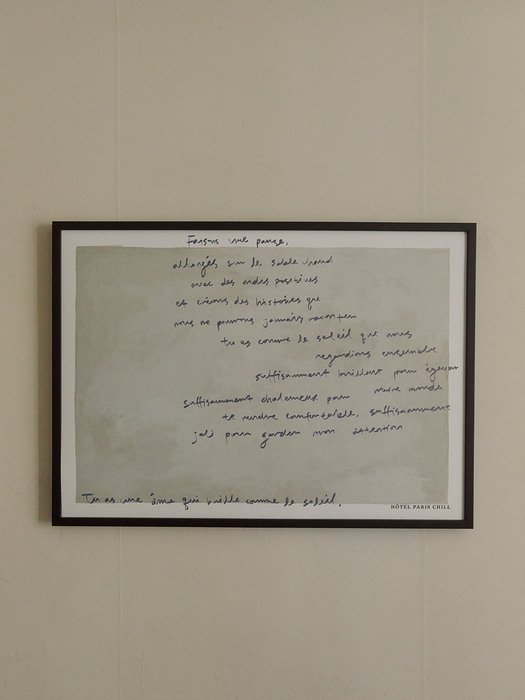 Faisons une pause,
allongés sur le sable chaud
avec des ondes positives
et créons des histoires que
nous ne pourrons jamais raconter
tu as comme le soleil que nous
regardions ensemble
suffisamment brillant pour égayer
suffisamment chaleureux pour notre monde
te rendre comfortable, suffisamment
joli pour garder mon attention
Tu as une âme qui brille comme le soleil.
HÔTEL PARIS CHILL